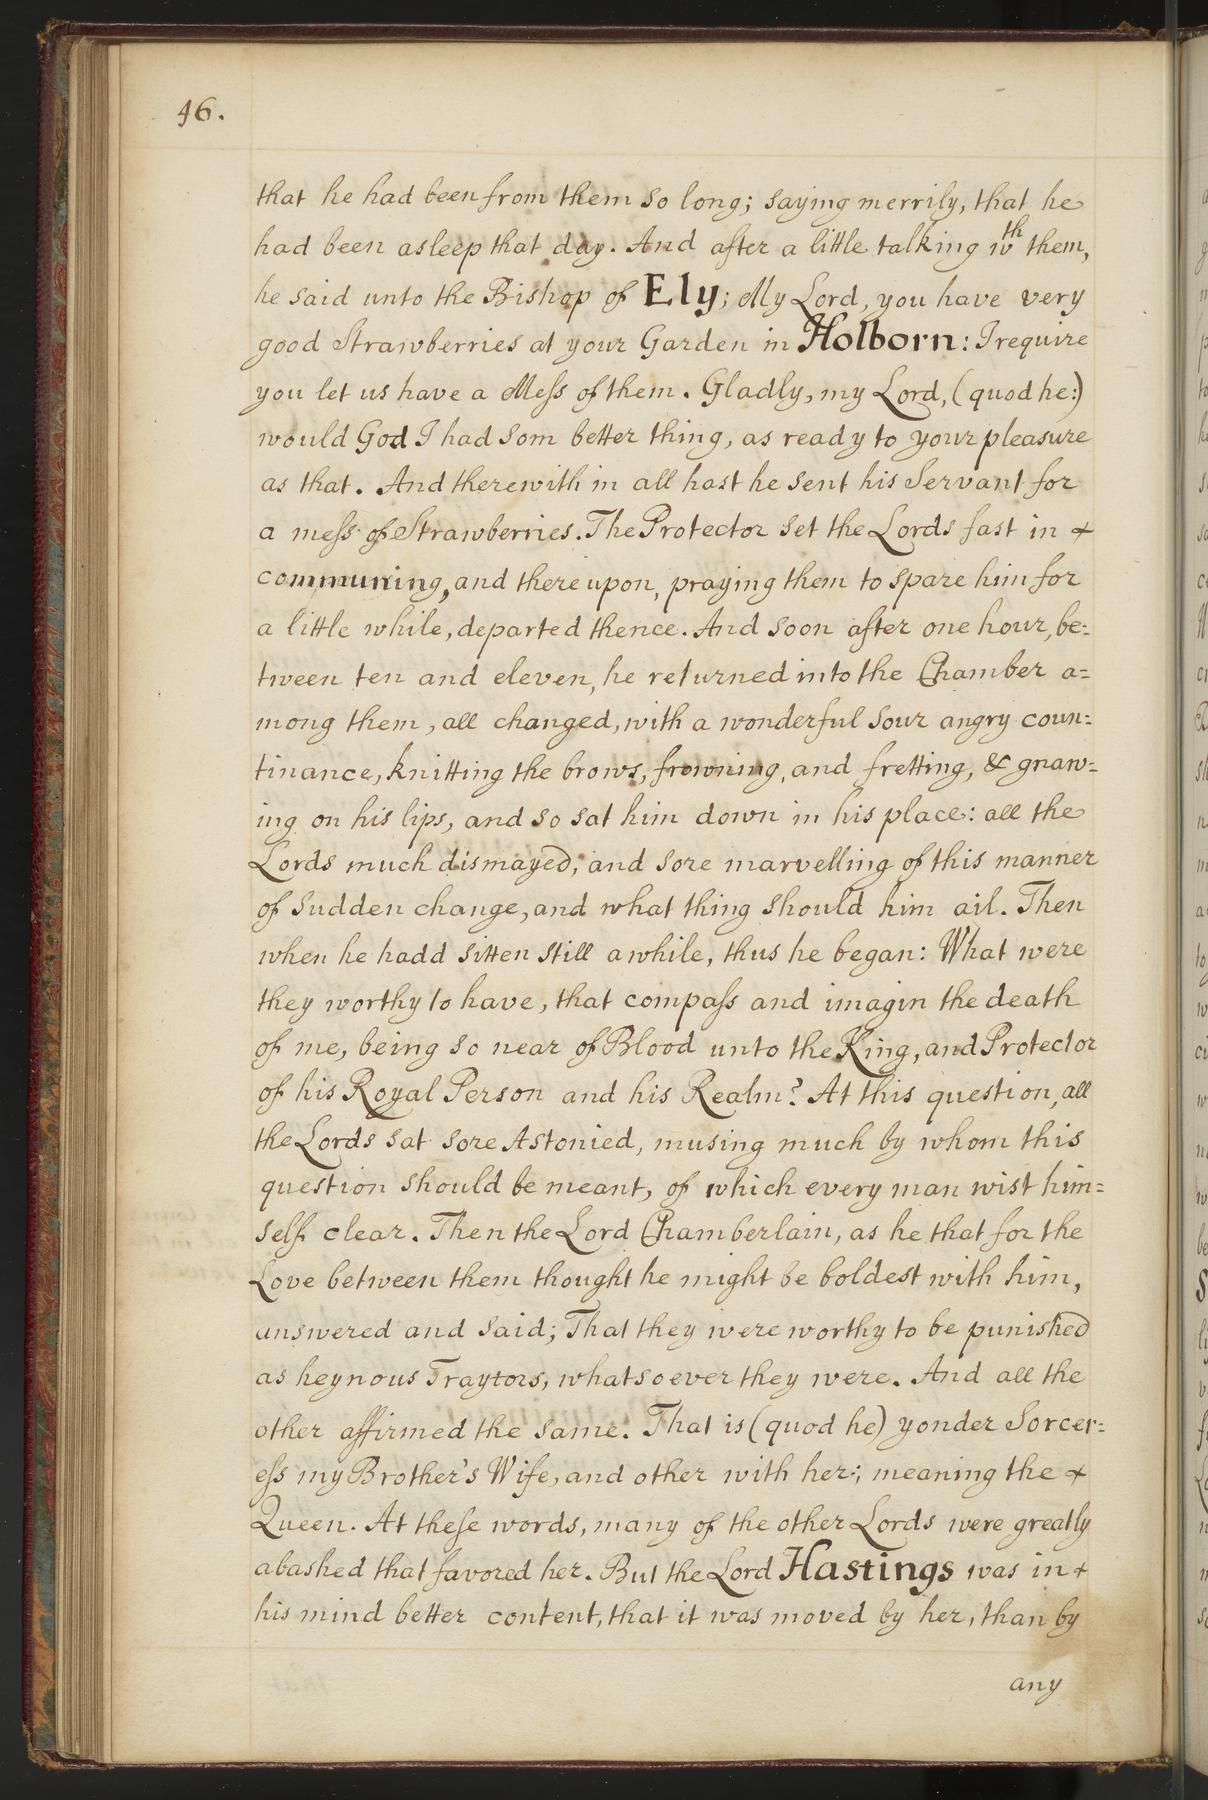 46.
that he had been from them so long; saying merrily, that he
had been asleep that day. And after a little talking wth them,
he said unto the Bishop of Ely; My Lord, you have very
good Strawberries at your Garden in Holborn: I require
you let us have a Meſs of them. Gladly, my Lord, (quod he:)
would God I had som better thing, as ready to your pleasure
as that. And therewith in all hast he sent his Servant for
a meſs of Strawberries. The Protector set the Lords fast in +
communing, and there upon, praying them to spare him for
a little while, departed thence. And soon after one hour, be=
tween ten and eleven, he returned into the Chamber a=
mong them, all changed, with a wonderful sour angry coun=
tinance, knitting the brows, frowning, and fretting, & gnaw=
ing on his lips, and so sat him down in his place: all the
Lords much dismayed, and sore marvelling of this manner
of sudden change, and what thing should him ail. Then
when he hadd sitten still a while, thus he began: What were
they worthy to have, that compaſs and imagin the death
of me, being so near of Blood unto the King, and Protector
of his Royal Person and his Realm? At this question, all
the Lords sat sore Astonied, musing much by whom this
question should be meant, of which every man wist him=
self clear. Then the Lord Chamberlain, as he that for the
Love between them thought he might be boldest with him,
answered and said; That they were worthy to be punished
as heynous Traytors, whatsoever they were. And all the
other affirmed the same. That is (quod he) yonder Sorcer=
eſs my Brother's Wife, and other with her; meaning the +
Queen. At theſe words, many of the other Lords were greatly
abashed that favored her. But the Lord Hastings was in +
his mind better content, that it was moved by her, than by
any